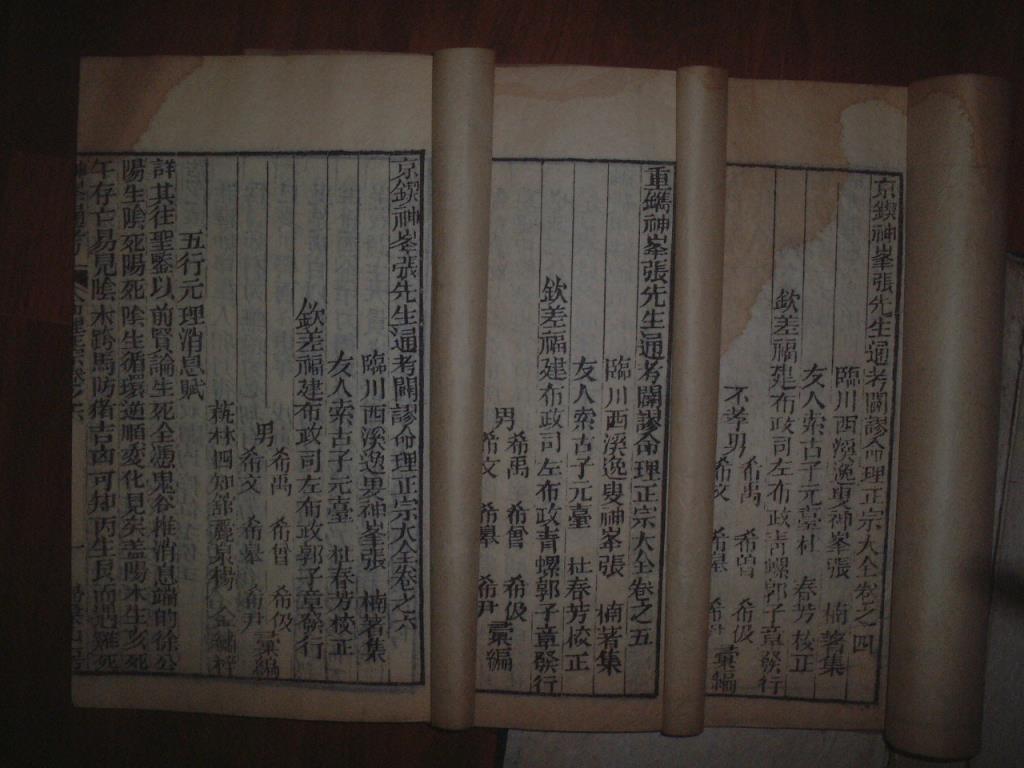 京鍥神峯張先生通考闢謬命理正宗大全卷之四
臨川西溪逸叟神峯張 楠著集
友人索古子元臺杜 春芳校正
欽差福建布政司左布政青螺郭子章發行
不孝男
希禹 希曽 希伋
希文 希㬅 希尹
彙編
重鐫神峯張先生通考闢謬命理正宗大全卷之五
臨川西溪逸叟神峯張 楠著集
友人索古子元臺 杜春芳校正
欽差福建布政司左布政青螺郭子章發行
男
希禹 希曽 希伋
希文 希㬅 希尹
彙編
京鍥神峯張先生通考闢謬命理正宗大全卷之六
臨川西溪逸叟神峯張 楠著集
友人索古子元臺 杜春芳校正
欽差福建布政司左布政郭子章發行
男
希禹 希曽 希伋
希文 希㬅 希尹
彙編
林四知舘麗泉楊 金繡梓
五行元理消息賦
詳其往聖鑒以前賢論生死全憑鬼谷推消息端的徐公
陽生陰死陽死陰生循環逆順変化見矣盖陽木生亥死
午存亡易見陰木跨馬防猪吉凶可知丙生艮而遇雞死